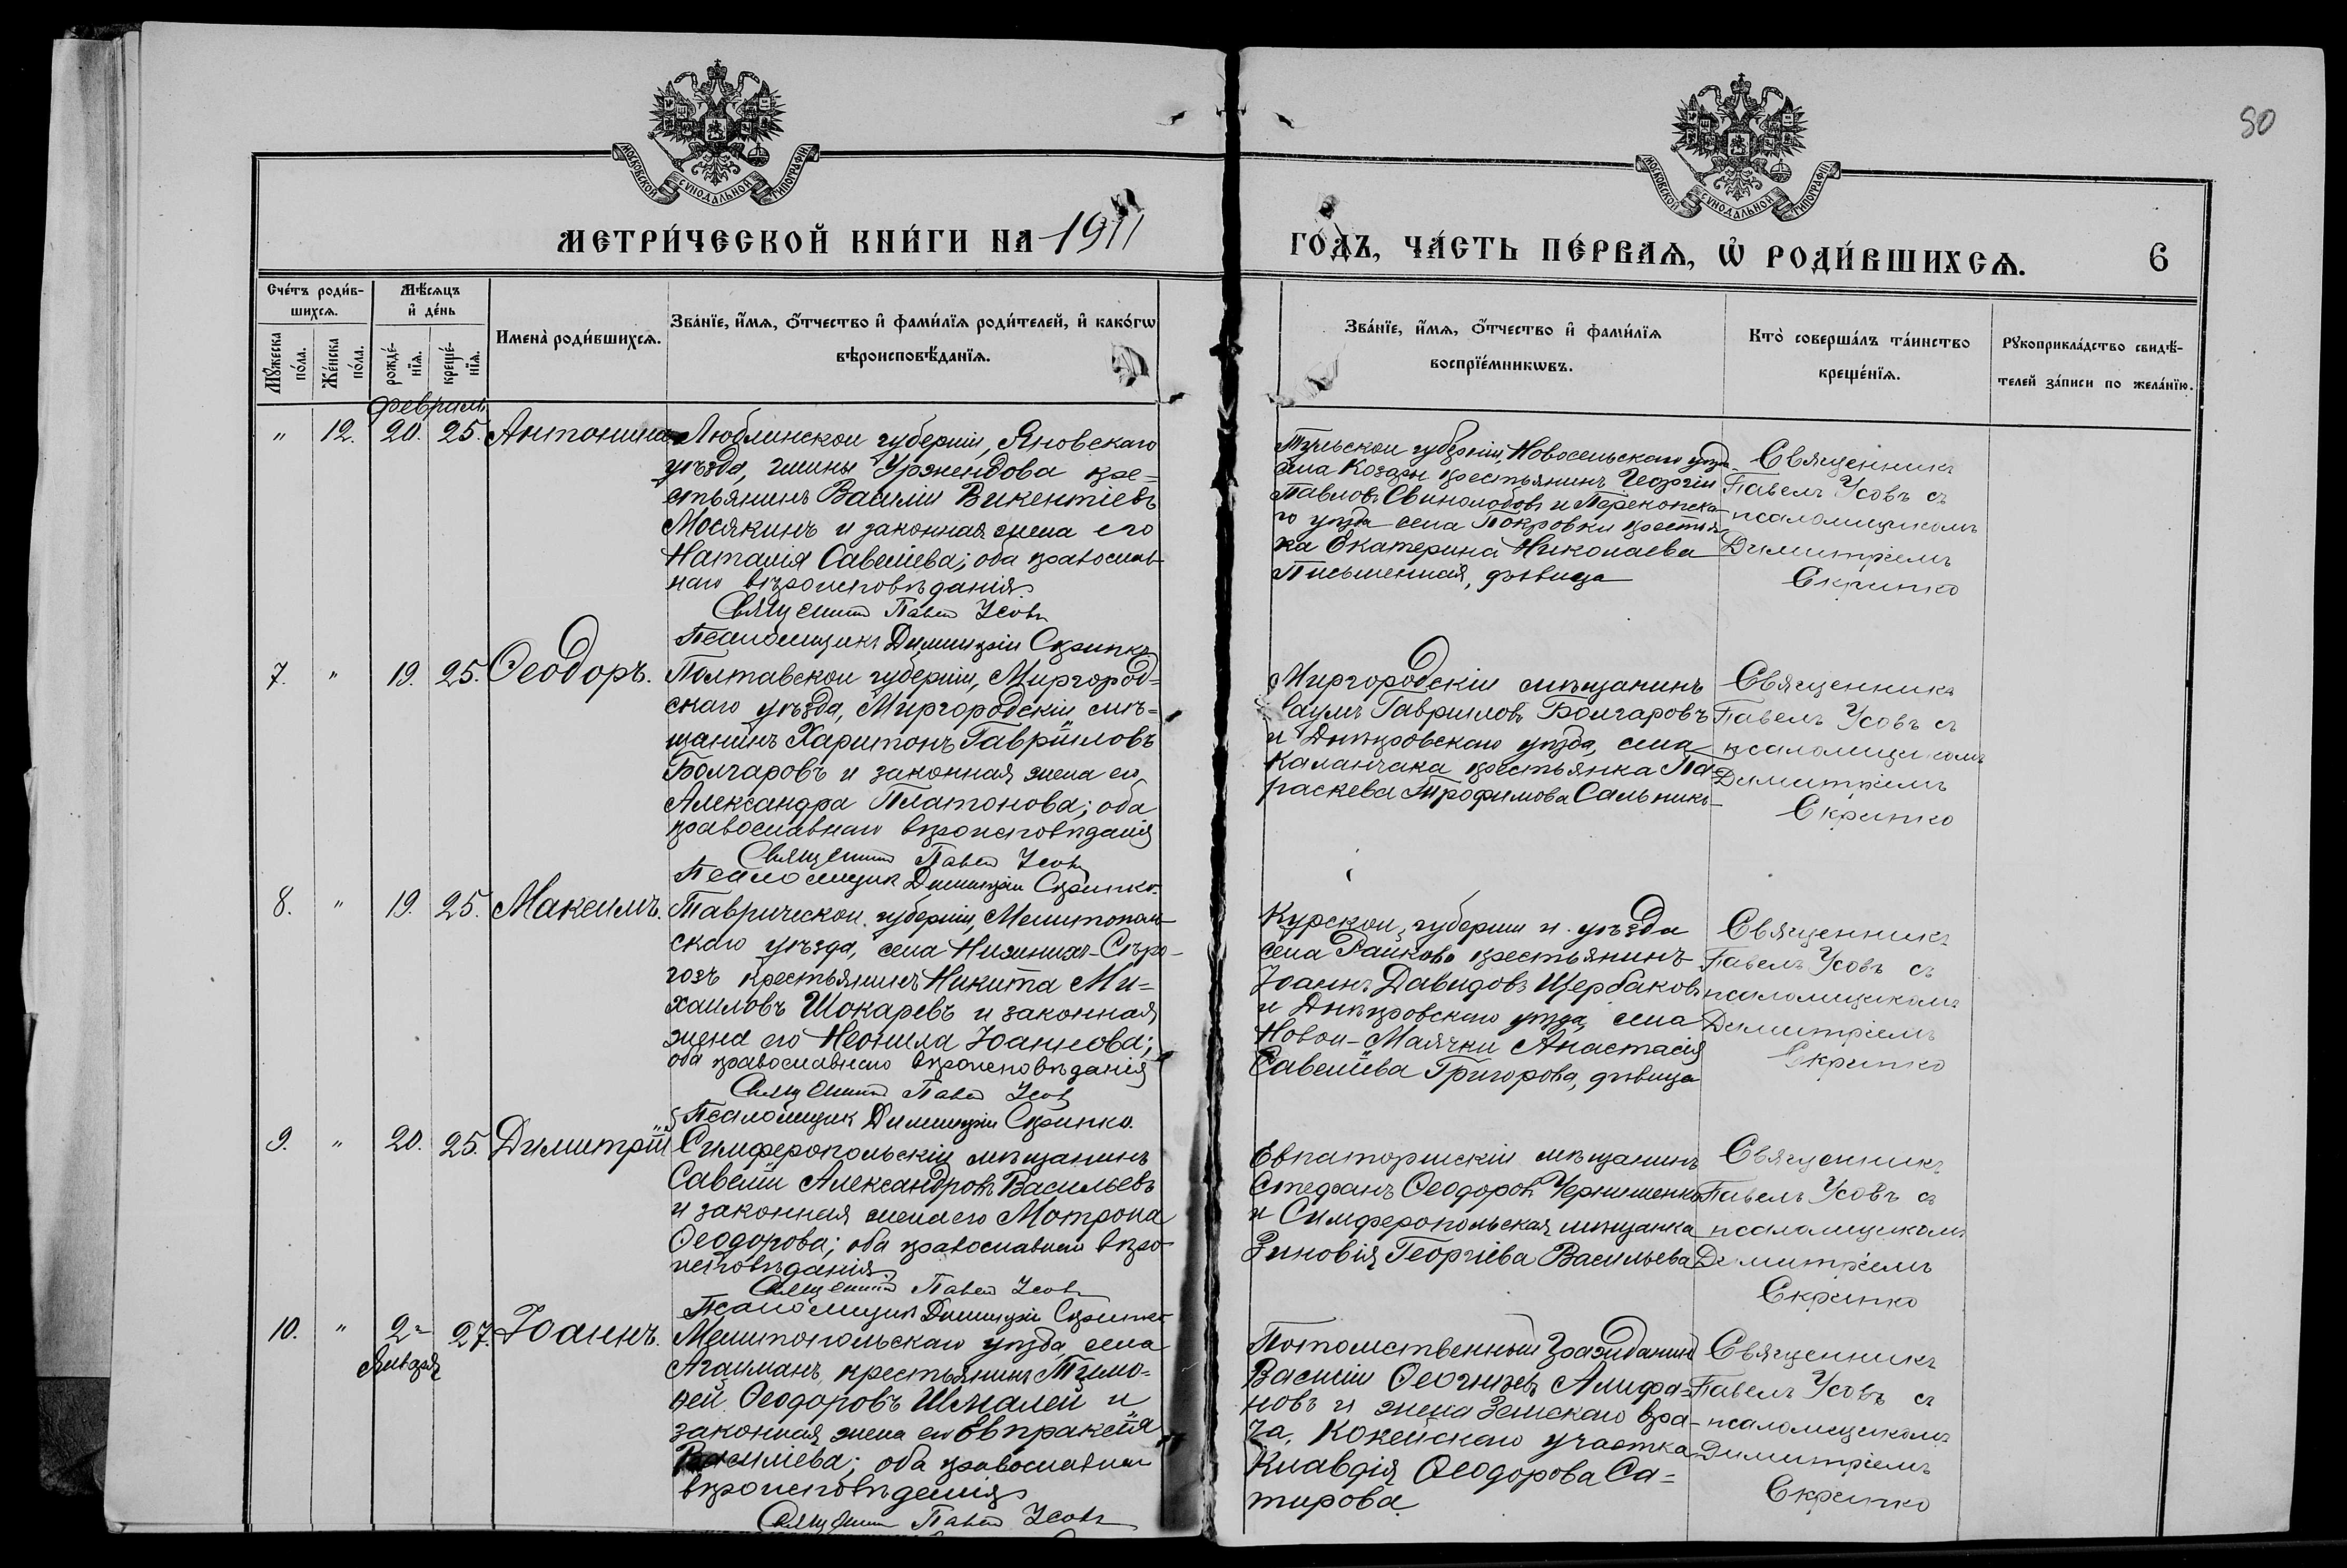 80
МОСКОВСКОЙ СУНОДАЛЬНОЙ ТИПОГРАФІИ
МОСКОВСКОЙ СУНОДАЛЬНОЙ ТИПОГРАФІИ
МЕТРИ́ЧЕСКОЙ КНИ́ГИ НА 1911
ГО́ДЪ, ЧА́СТЬ ПЕ́РВАѦ, Ѡ҆ РОДИ́ВШИХСѦ.
6
Сче́тъ роди́в-
шихсѧ.
Мѣ́сяцъ
и҆ де́нь
Мꙋ́жеска
по́ла.
Же́нска
по́ла.
рожде́-
нїѧ.
креще́-
нїѧ.
Имена̀ роди́вшихсѧ.
Зва́нїе, и҆́мѧ, ѻ҆́тчество и҆ фами́лїѧ роди́телей, и҆ како́гѡ
вѣроисповѣ́данїѧ.
Зва́нїе, и҆́мѧ, ѻ҆́тчество и҆ фами́лїѧ
воспрїе́мникѡвъ.
Кто̀ соверша́лъ та́инство
креще́нїѧ.
Рꙋкоприкла́дство свидѣ́-
телей за́писи по жела́нїю.
Февраль
" 12. 20. 25. Антонина
Люблинской губерніи, Яновскаго
уѣзда, гмины Уржендова кре=
стьянинъ Василій Викентіевъ
Мосякинъ и законная жена его
Наталія Савеліева; оба православ-
наго вѣроисповѣданія.
Священникъ Павелъ Усовъ
Псаломщикъ Димитрій Скрипко
Тульской губерніи, Новосельскаго уѣзда
села Козарь крестьянинъ Георгій
Павловъ Свинолобовъ и Перекопска-
го уѣзда села Покровки крестьян
ка Екатерина Николаева
Письменная, дѣвица
Священникъ
Павелъ Усовъ съ
псаломщикомъ
Димитріемъ
Скрипко
7. " 19. 25. Ѳеодоръ.
Полтавской губерніи, Миргород=
скаго уѣзда, Миргородскій мѣ=
щанинъ Харитонъ Гавріиловъ
Болгаровъ и законная жена его
Александра Платонова; оба
православнаго вѣроисповѣданія
Священникъ Павелъ Усовъ
Псаломщикъ Димитрій Скрипко.
Миргородскій мѣщанинъ
Наумъ Гавріиловъ Болгаровъ
и Днѣпровскаго уѣзда, села
Каланчака крестьянка Па-
раскева Трофимова Сальникъ
Священникъ
Павелъ Усовъ съ
псаломщикомъ
Димитріемъ
Скрипко
8. " 19. 25. Максимъ.
Таврической губерніи, Мелитополь-
скаго уѣзда, села Нижнихъ-Сѣро-
гозъ крестьянинъ Никита Ми=
хаиловъ Шокаревъ и законная
жена его Неонила Іоаннова;
оба православнаго вѣроисповѣданія
Священникъ Павелъ Усовъ
Псаломщик Димитрій Скрипко.
Курской губерніи и уѣзда
села Райково крестьянинъ
Іоаннъ Давидовъ Щербаковъ
и Днѣпровскаго уѣзда, села
Новой-Маячки Анастасія
Савеліева Григорова, дѣвица
Священникъ
Павелъ Усовъ съ
псаломщикомъ
Димитріемъ
Скрипко
9. " 20. 25. Димитрій
Симферопольскій мѣщанинъ
Савелій Александровъ Васильевъ
и законная жена его Матрона
Ѳеодорова; оба православнаго вѣро-
исповѣданія.
Священникъ Павелъ Усовъ
Псаломщикъ Димитрій Скрипко
Евпаторійскій мѣщанинъ
Стефанъ Ѳеодоровъ Чернишенко
и Симферопольская мѣщанка
Зиновія Георгіева Васильева
Священникъ
Павелъ Усовъ съ
псаломщикомъ
Димитріемъ
Скрипко
10. " 2-го 27. Іоаннъ.
Января
Мелитопольскаго уѣзда, села
Агайманъ, крестьянинъ Тимо-
ѳей Ѳеодоровъ Шмалей и
законная жена его Евпраксія
Василіева; оба православнаго
вѣроисповѣданія
Священникъ Павелъ Усовъ
Потомственный Гражданинъ
Василій Алифа=
новъ и жена Земскаго вра-
ча, Кокейскаго участка
Клавдія Ѳеодорова Са=
тирова
Священникъ
Павелъ Усовъ съ
псаломщикомъ
Димитріемъ
Скрипко